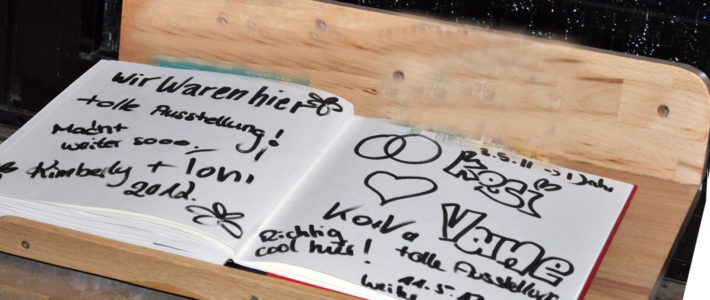 Wir Waren hier
tolle Ausstellung!
Macht
weiter sooo!
Kimberly + Toni
2012.
2.5.11 → 1 Jahr
Rosi
Vane
Richtig
cool hier!
tolle Ausstellung
11.5.
weiter